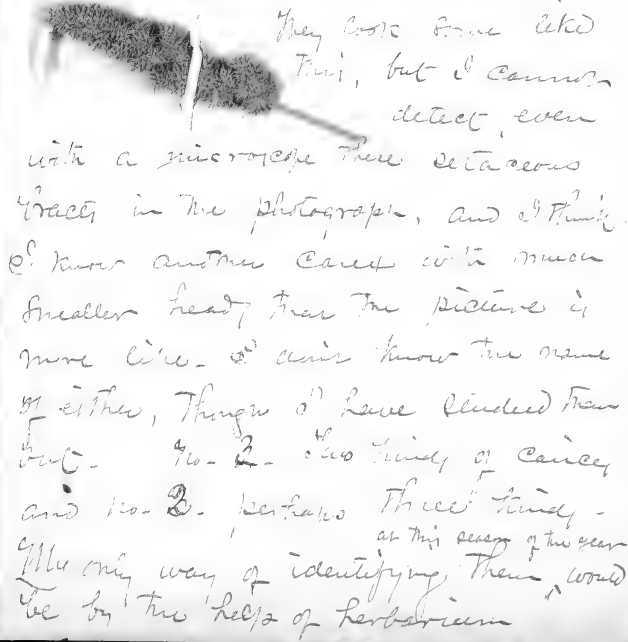 They look some like
this, but I cannot
detect, even
with a microscope these setaceous
bracts in the photograph, and I think
I know another Carex with much
smaller heads that the picture is
more like. I don't know the name
of either, though I have studied them
but. No. 2. two kinds of
and no. 3. perhaps three kinds.
at this season of the year
The only way of identifying them ^ would
be by the help of herbarium